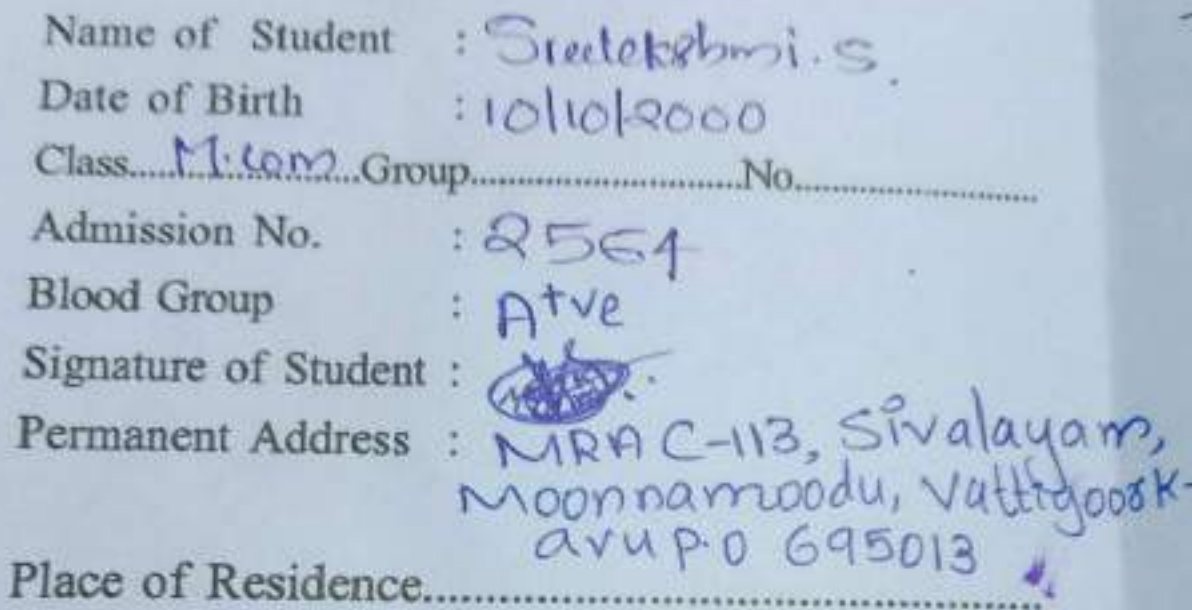 Name of Student : Sreelekshmi. S.
Date of Birth : 10/10/2000
Class.....M.com...Group...........................No........................
Admission No. : 2564
Blood Group : A+ve
Signature of Student :
Permanent Address : MRA C-113, Sivalayam,
Moonnamoodu, Vattiyoork-
avu P.O 695013
Place of Residence.............................................................